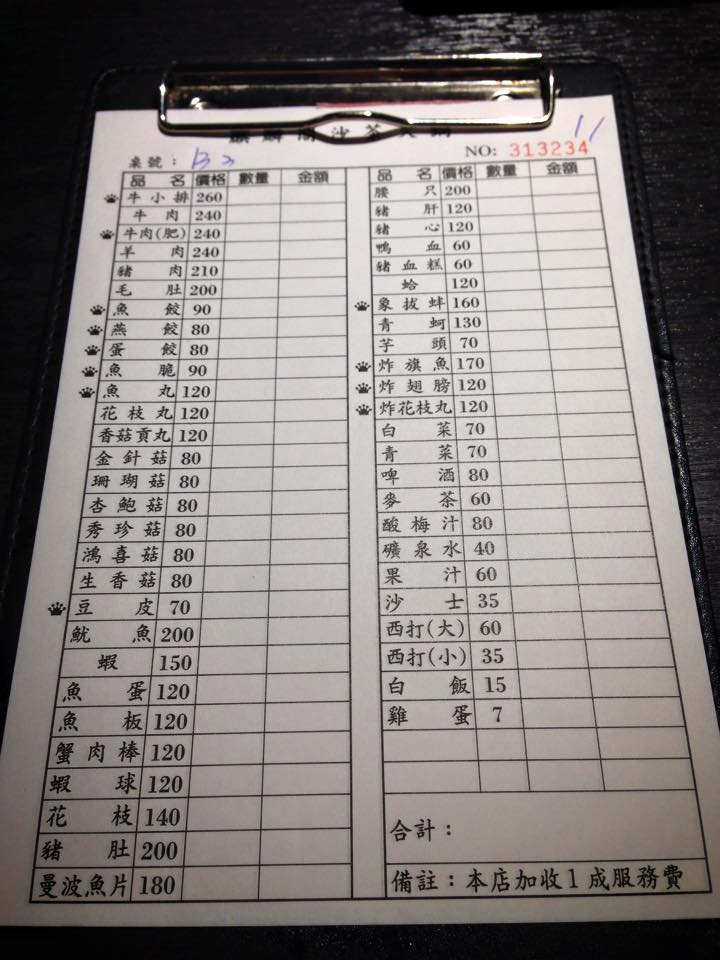 沙茶火鍋
NO: 313234
11
桌號：B2
品名 價格 數量 金額
牛小排 260
牛肉 240
牛肉(肥) 240
羊肉 240
豬肉 210
毛肚 200
魚餃 90
燕餃 80
蛋餃 80
魚脆 90
魚丸 120
花枝丸 120
香菇貢丸 120
金針菇 80
珊瑚菇 80
杏鮑菇 80
秀珍菇 80
鴻喜菇 80
生香菇 80
豆皮 70
魷魚 200
蝦 150
魚蛋 120
魚板 120
蟹肉棒 120
蝦球 120
花枝 140
豬肚 200
曼波魚片 180
品名 價格 數量 金額
腰只 200
豬肝 120
豬心 120
鴨血 60
豬血糕 60
蛤 120
象拔蚌 160
青蚵 130
芋頭 70
炸旗魚 170
炸翅膀 120
炸花枝丸 120
白菜 70
青菜 70
啤酒 80
麥茶 60
酸梅汁 80
礦泉水 40
果汁 60
沙士 35
西打(大) 60
西打(小) 35
白飯 15
雞蛋 7
合計：
備註：本店加收1成服務費